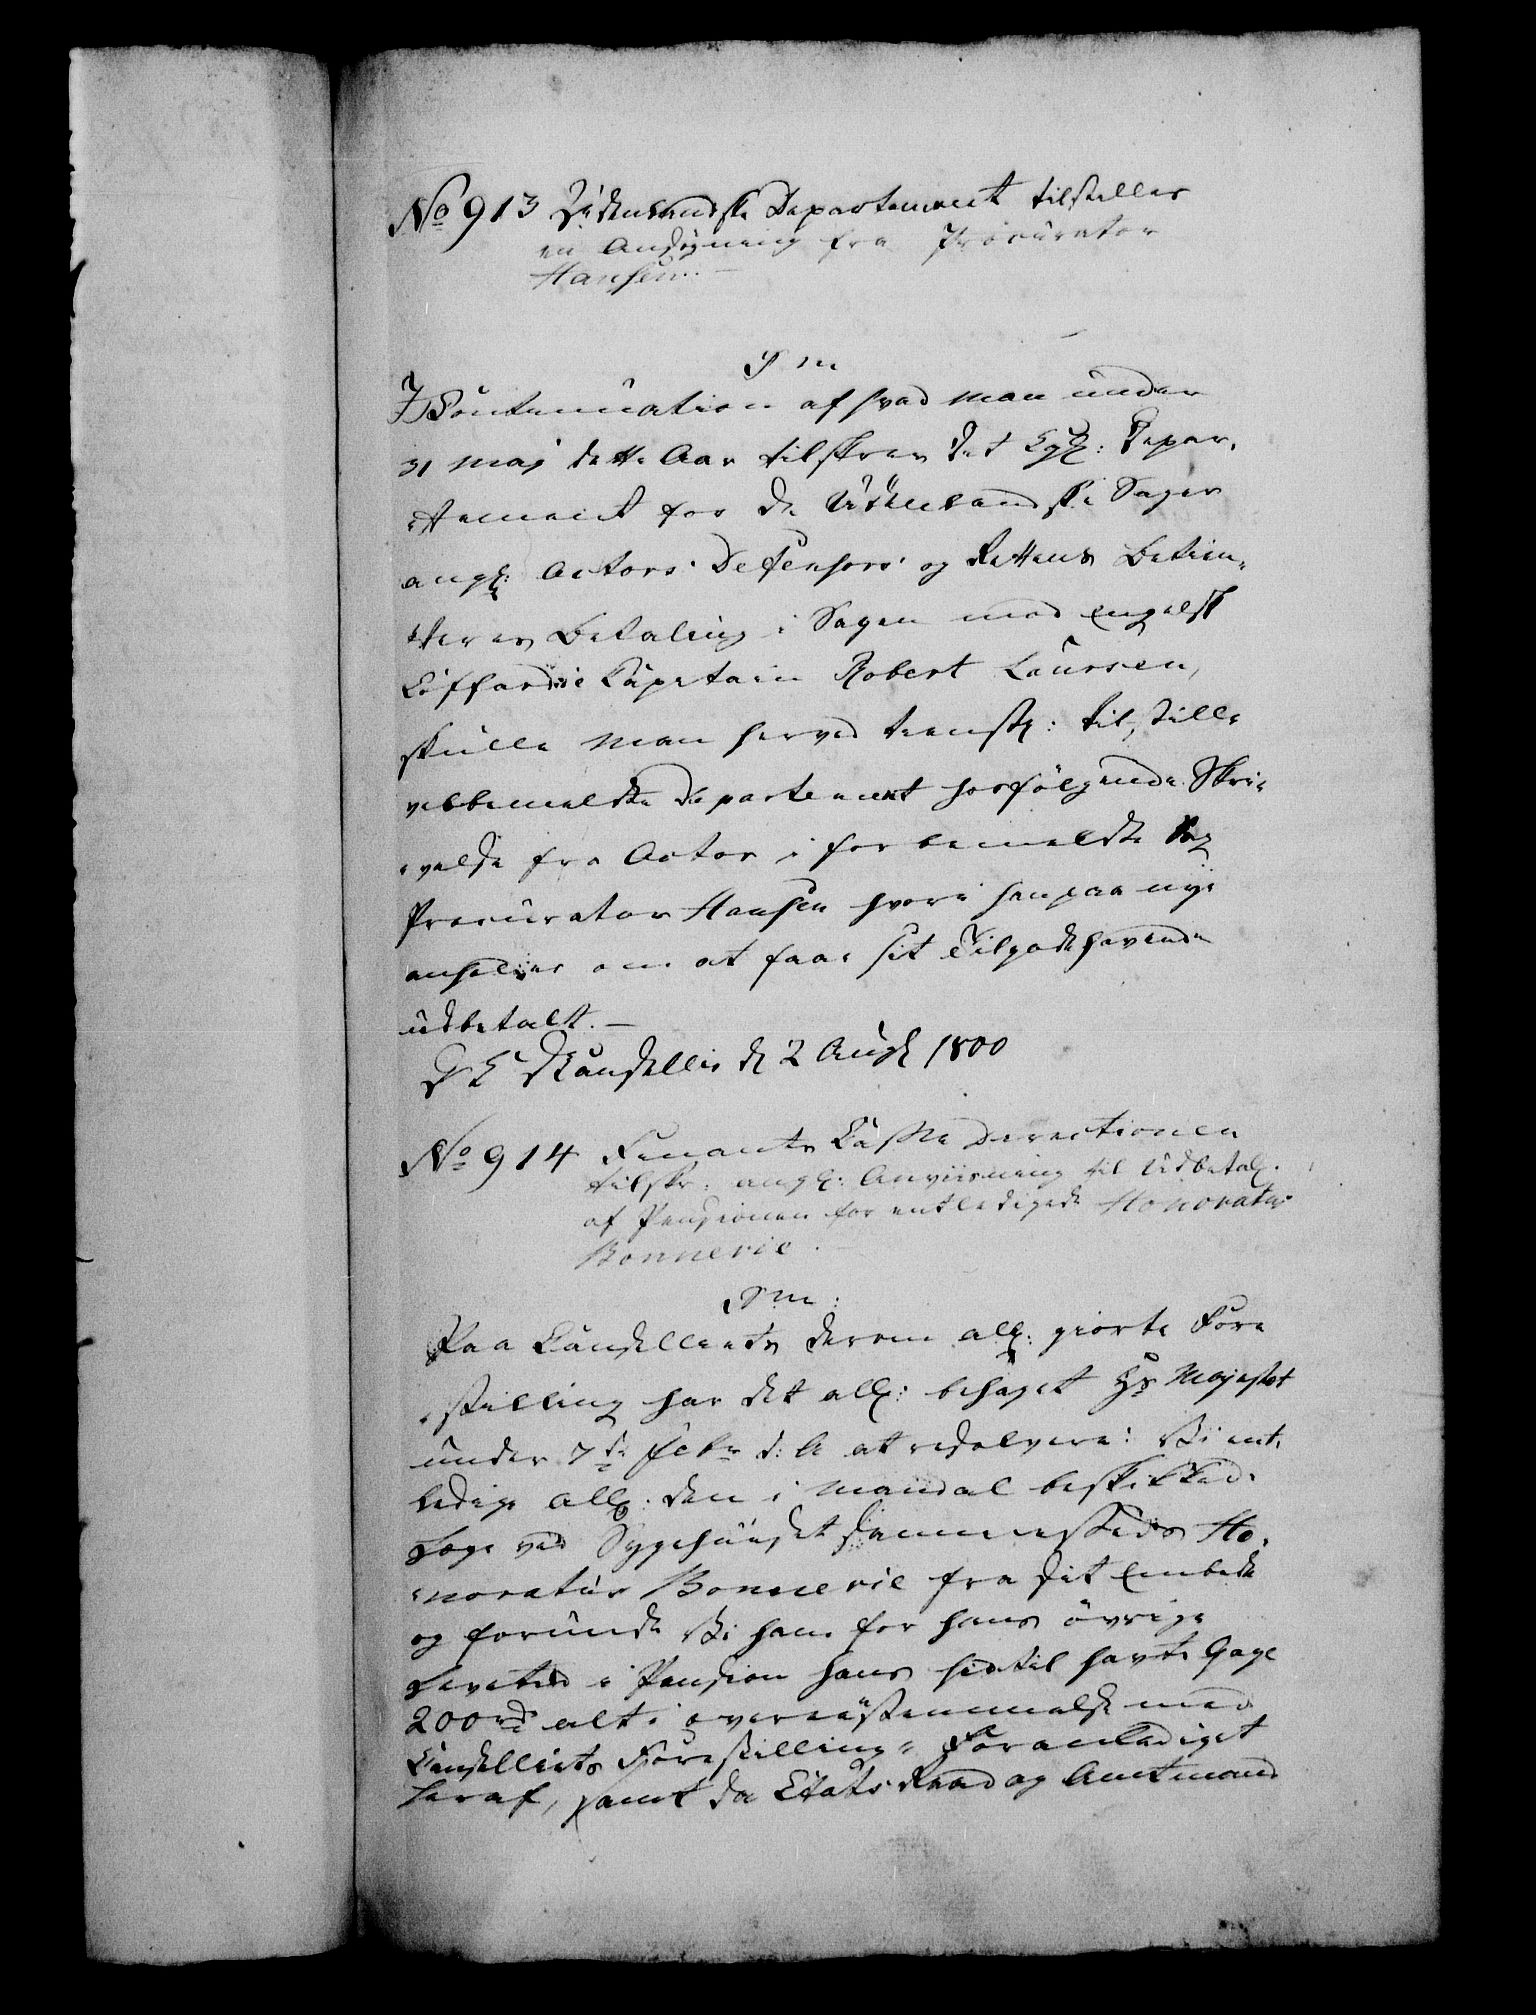 No 913 Udenlandske Departement tilstilles
en Ansøgning fra Procurator
Hansen. —
P M
I Continuation af hvad man under
31 Maj dette Aar tilskrev det Kgl: Depar,
,tement for de Udenlandske Sager
angl: Actors Defensors og Rettens Betien,
teres Betaling i Sagen mod Engelsk
Coffardie Capitain Robert Laursen,
skulle man herved tienstl: til,stille
velbemeldte Departement hosfølgende Skri,
,velse fra Actor i forbemeldte Sag
Procurator Hansen hvori han paa nye
anholder om at faae sit Tilgodehavende
udbetalt. —
D K Kancellie d 2 Aug 1800
No 914 Finants Casse Directionen
tilskr: angl: Anviisning til Udbetal.
af Pensionen for entledigede Honoratus
Bonnevie. —
P M:
Paa Cancelliets derom all: giorte Fore
,stilling har det all: behaget Hs Majestet
under 7de Febr d: A at resolvere: Vi ent,
ledige All: den i Mandal beskikkede
Læge ved Sygehuuset sammesteds Ho,
,noratus Bonnevie fra sit Embede
og forunde Vi ham for hans øvrige
Levetid i Pension hans hidtil havte Gage
200 rd alt i overeensstemmelse med
Cancelliets Forestilling. Foranlediget
heraf, samt da Etats Raad og Amtmand